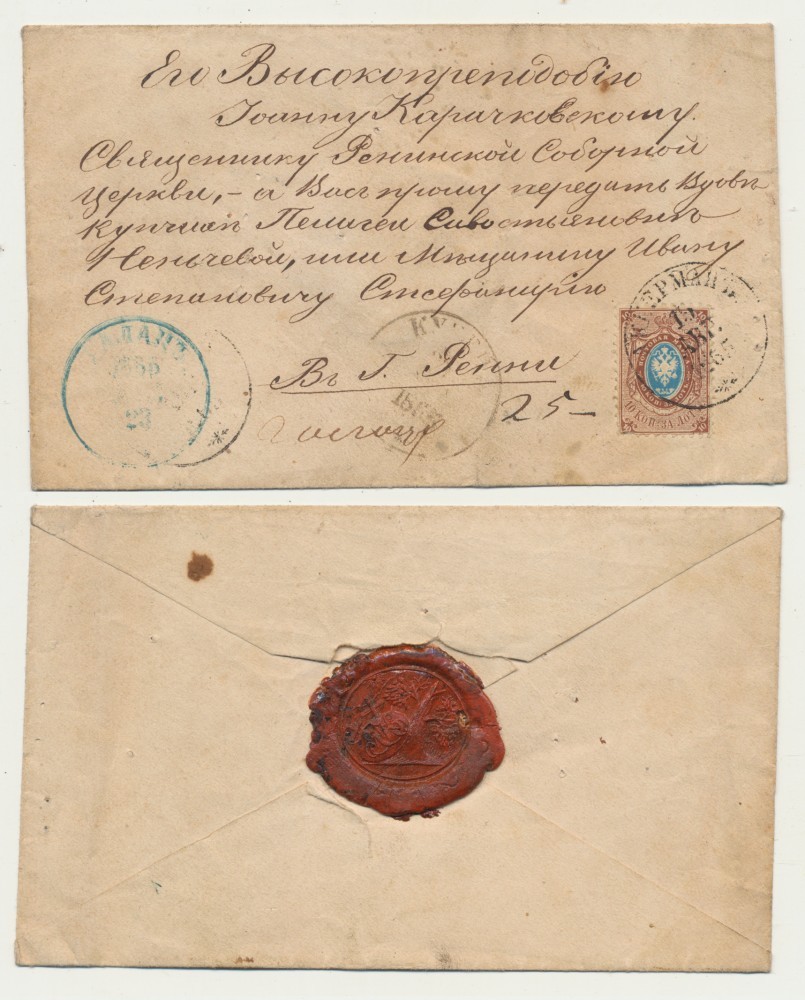 Его Высокопреподобію
Іоанну Карачковскому.
Священнику Ренинской Соборной
церкви, – а Васъ прошу передать Вдовѣ
купчихѣ Пелагеи Сивостьяновнѣ
Ненчевой, или Мѣщанину Ивану
Степановичу Стефаницкию
Въ Г. Ренни
25 –
АККЕРМАНЪ
АВГ.
10 КОП. ЗА ЛОТЪ
23